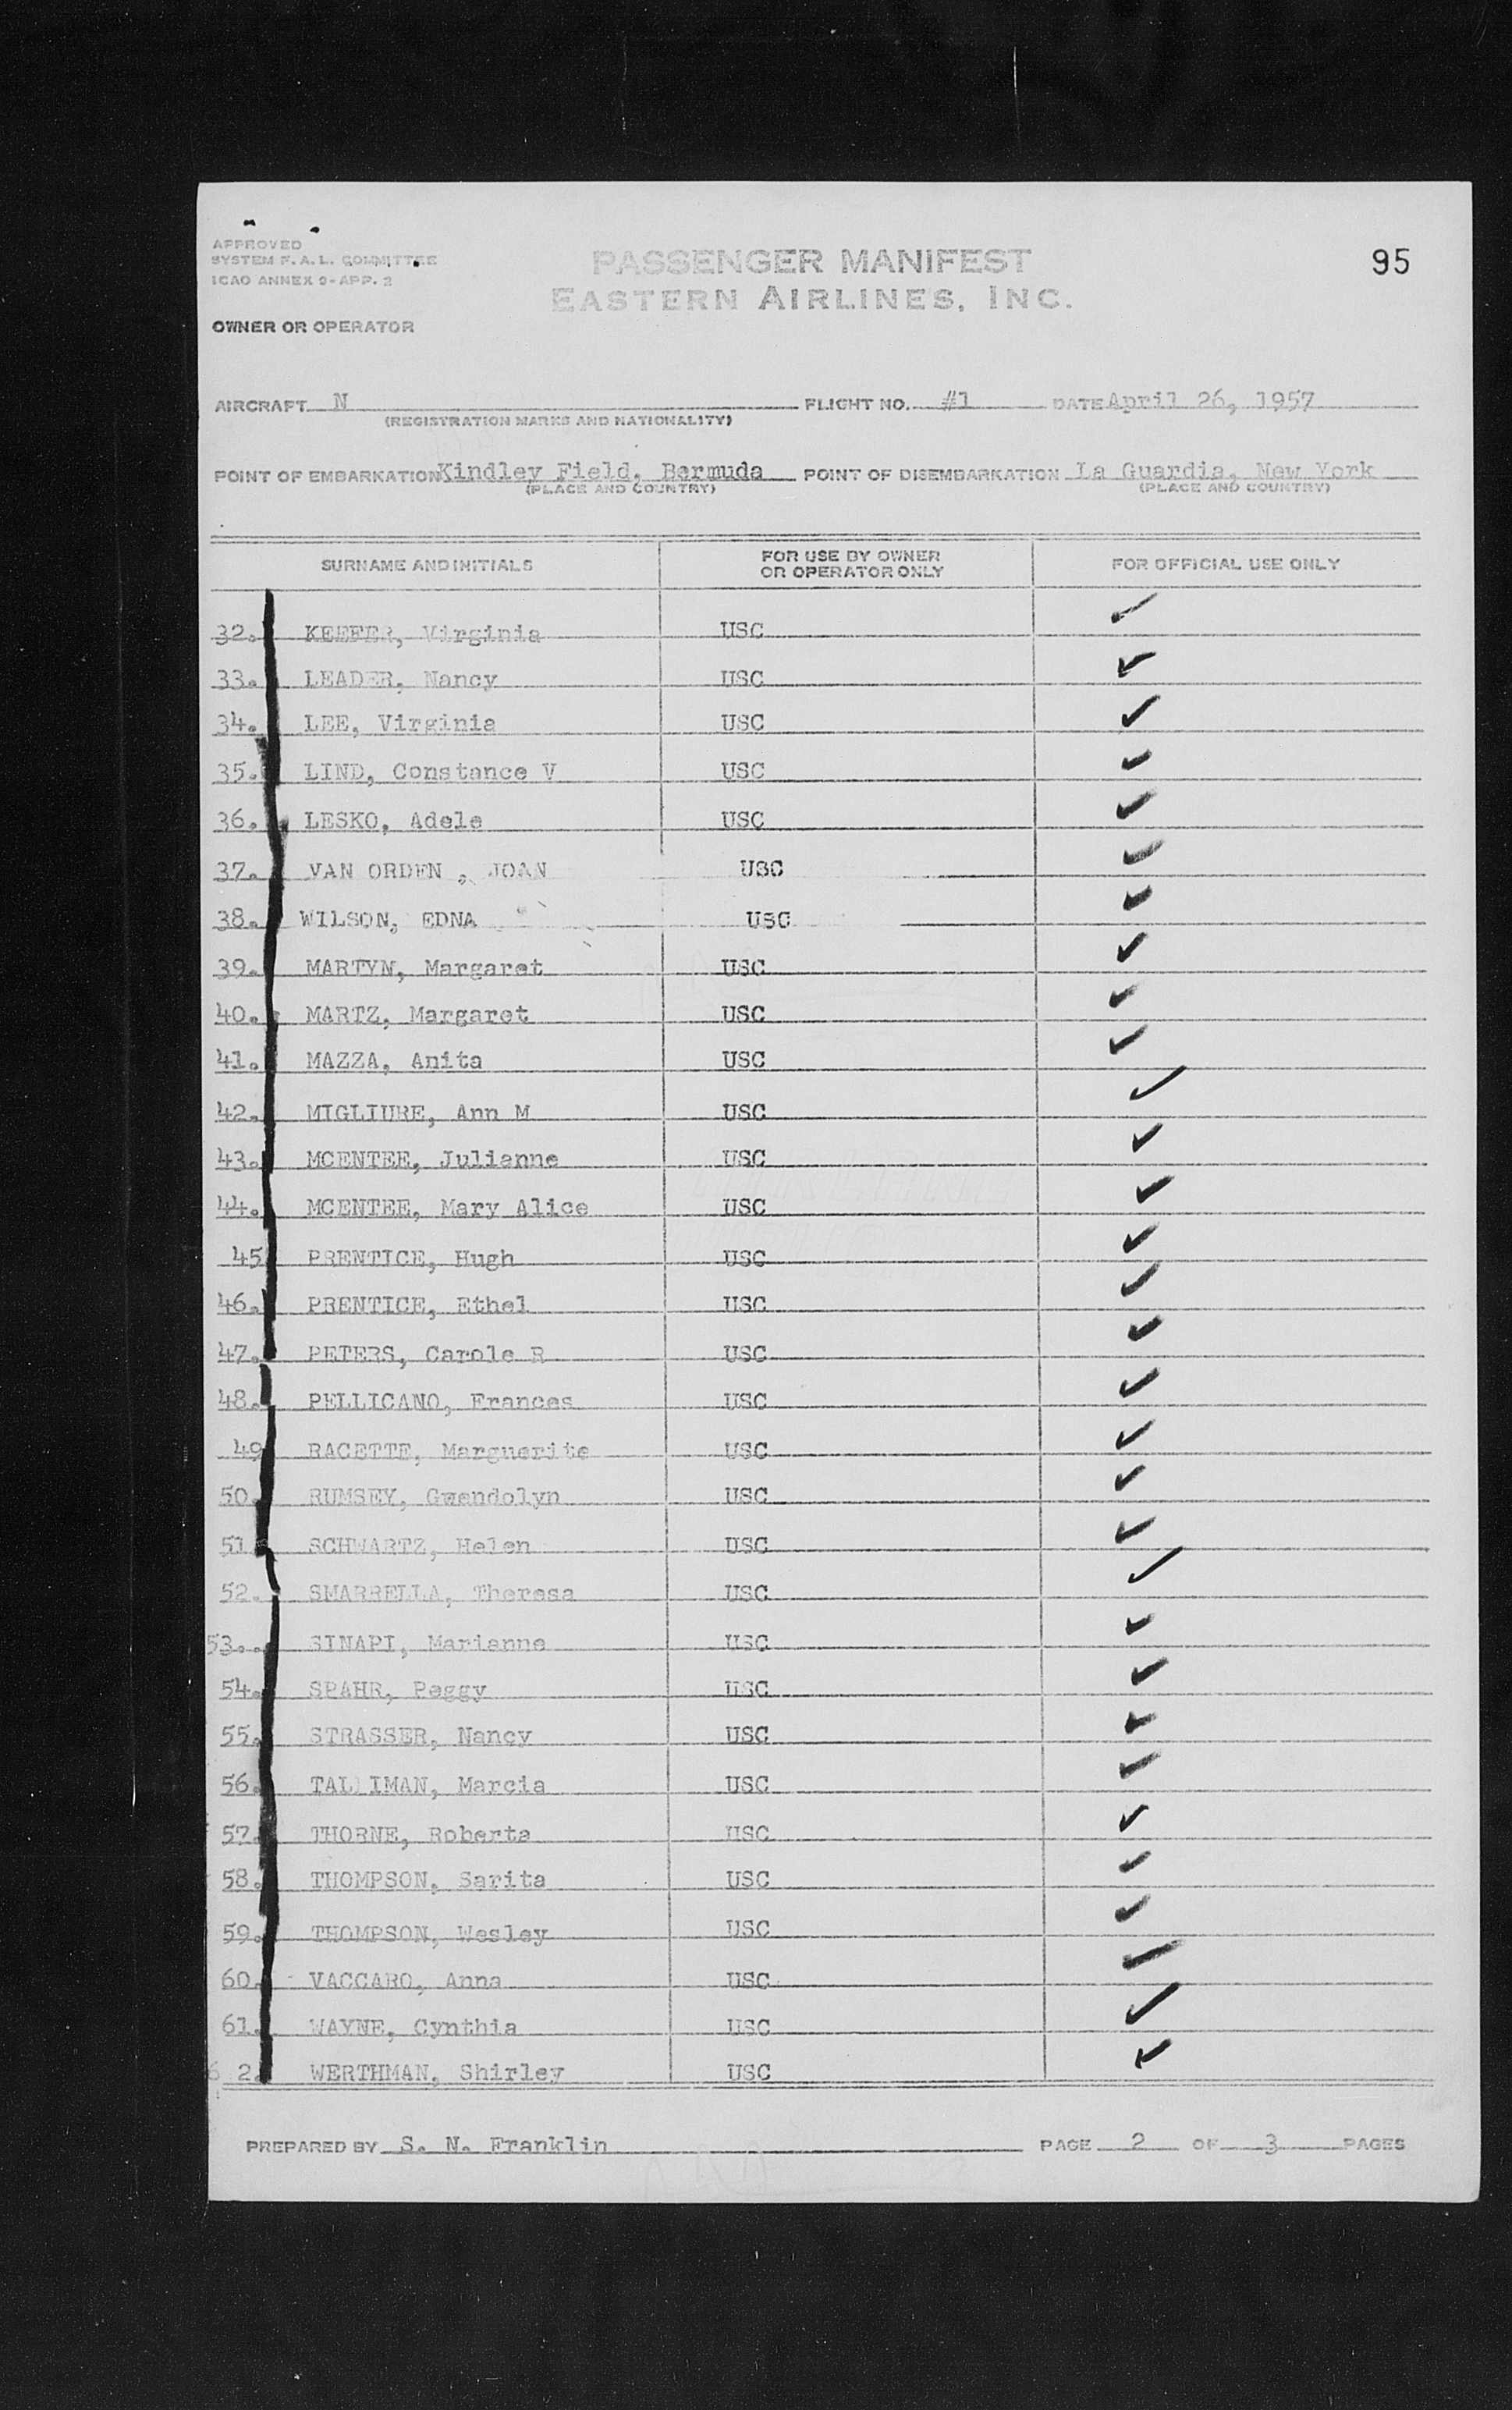 APPROVED
SYSTEM F.A.L. COMMITTEE
ICAO ANNEX 9-APP. 2
PASSENGER MANIFEST
EASTERN AIRLINES, INC.
95
OWNER OR OPERATOR
AIRCRAFT N FLIGHT NO. #1 DATE April 26, 1957
(REGISTRATION MARKS AND NATIONALITY)
POINT OF EMBARKATION Kindley Field, Bermuda POINT OF DISEMBARKATION La Guardia, New York
(PLACE AND COUNTRY) (PLACE AND COUNTRY)
SURNAME AND INITIALS FOR USE BY OWNER OR OPERATOR ONLY FOR OFFICIAL USE ONLY
32. KEEFER, Virginia USC ✓
33. LEADER, Nancy USC ✓
34. LEE, Virginia USC ✓
35. LIND, Constance V USC ✓
36. LESKO, Adele USC ✓
37. VAN ORDEN , JOAN USC ✓
38. WILSON, EDNA USC ✓
39. MARTYN, Margaret USC ✓
40. MARTZ, Margaret USC ✓
41. MAZZA, Anita USC ✓
42. MIGLIURE, Ann M USC ✓
43. MCENTEE, Julianne USC ✓
44. MCENTEE, Mary Alice USC ✓
45 PRENTICE, Hugh USC ✓
46. PRENTICE, Ethel USC ✓
47. PETERS, Carole R USC ✓
48. PELLICANO, Frances USC ✓
49 RACETTE, Marguerite USC ✓
50. RUMSEY, Gwendolyn USC ✓
51 SCHWARTZ, Helen USC ✓
52. SMARRELLA, Theresa USC ✓
53. SINAPI, Marianne USC ✓
54. SPAHR, Peggy USC ✓
55. STRASSER, Nancy USC ✓
56. TAL IMAN, Marcia USC ✓
57. THORNE, Roberta USC ✓
58. THOMPSON, Sarita USC ✓
59. THOMPSON, Wesley USC ✓
60. VACCARO, Anna USC ✓
61. WAYNE, Cynthia USC ✓
6 2. WERTHMAN, Shirley USC ✓
PREPARED BY S. N. Franklin PAGE 2 OF 3 PAGES